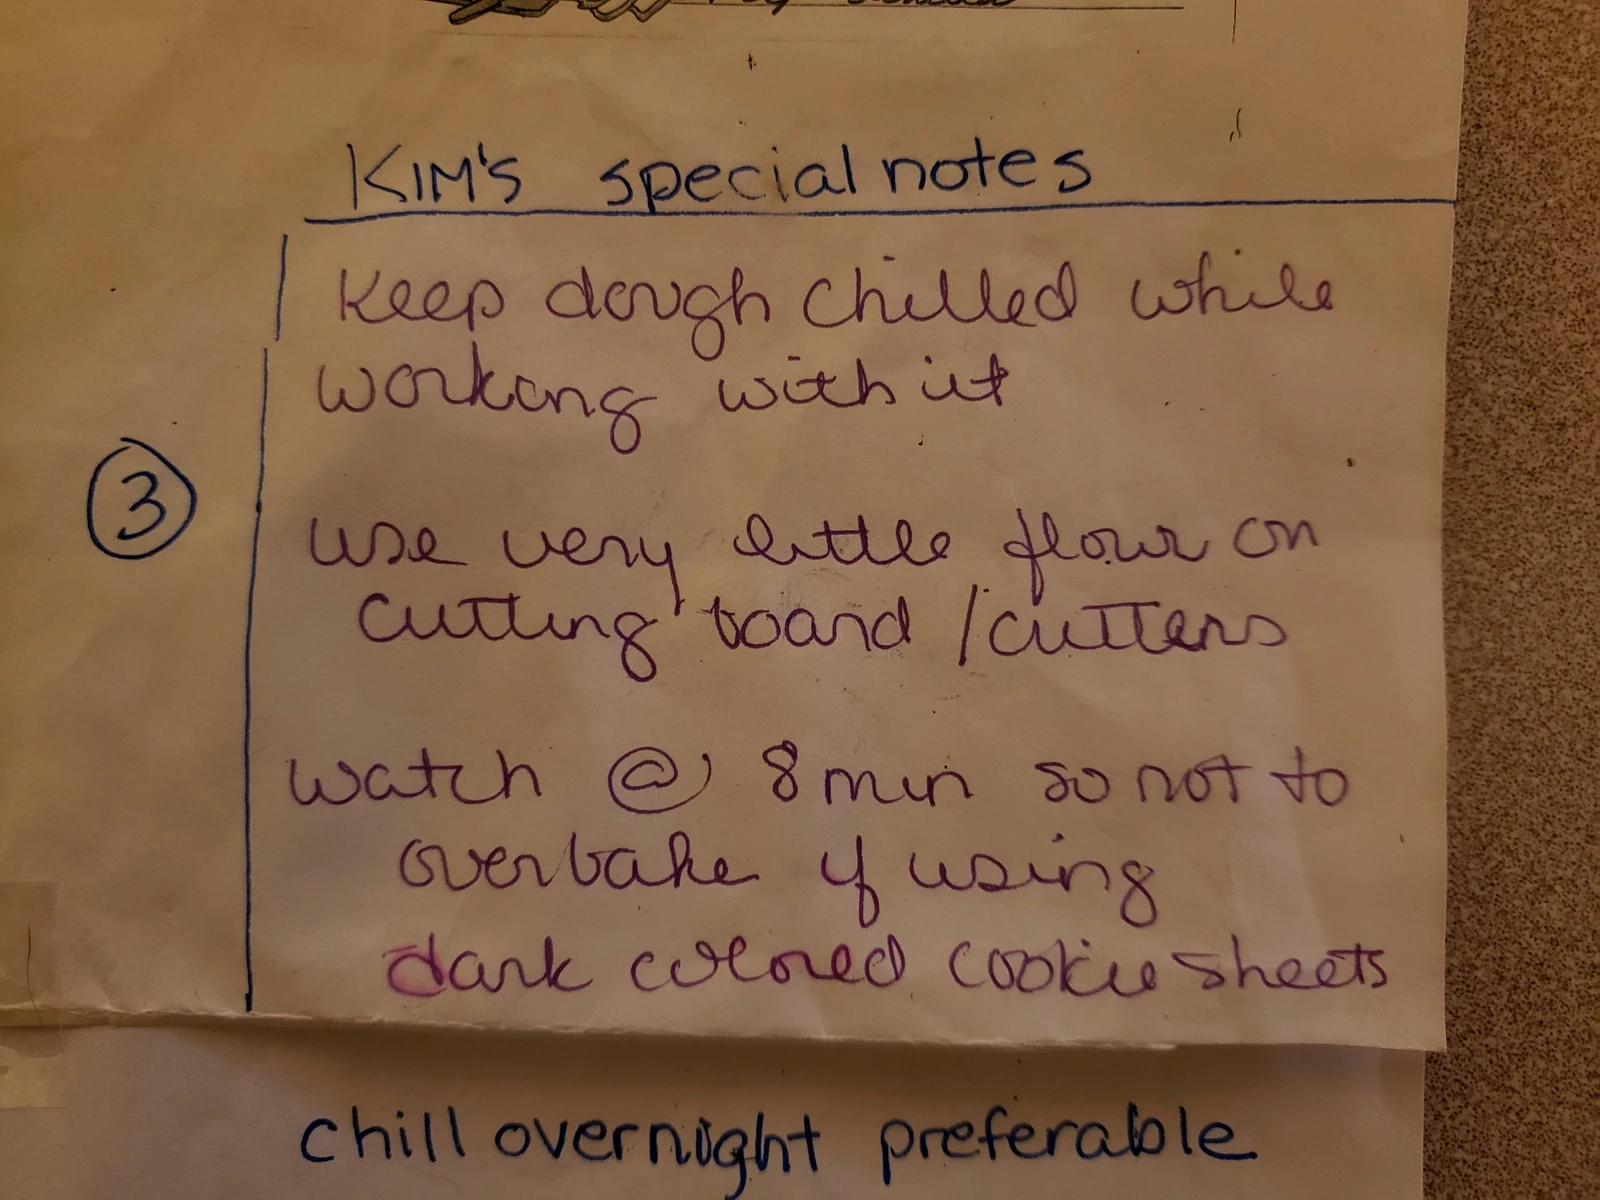 KIM'S special notes
Keep dough chilled while
working with it
③
use very little flour on
cutting board / cutters
watch @ 8 min so not to
overbake if using
dark colored cookie sheets
chill overnight preferable